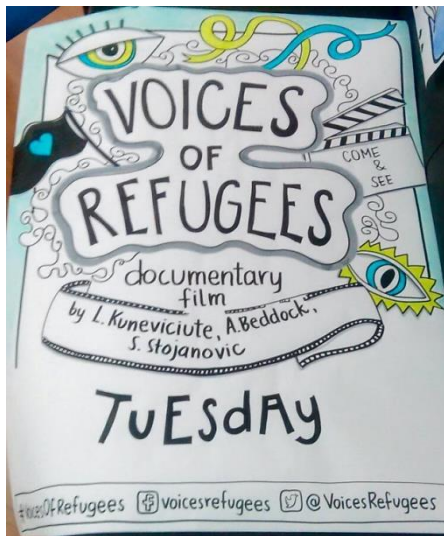 VOICES
OF
REFUGEES
COME
&
SEE
documentary
film
by L. Kuneviciute, A. Beddock,
S. Stojanovic
TUESdAy
#VoicesOfRefugees voicesrefugees @VoicesRefugees